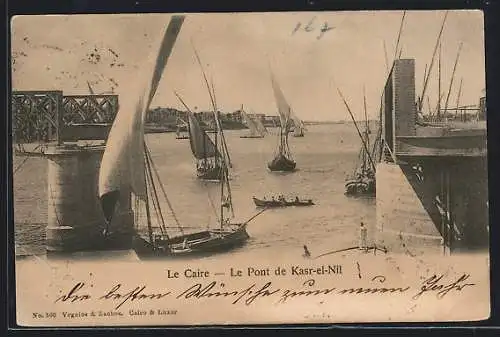 167
Le Caire — Le Pont de Kasr-el-Nil
die besten Wünsche zum neuen Jahre
No. 560 Vegnios & Zachos, Cairo & Luxor